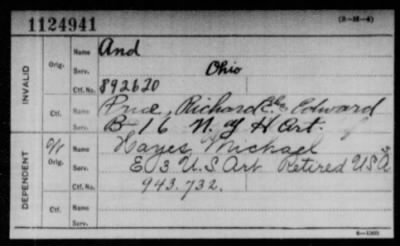 1124941
(3-M-4)
INVALID
Orig. Name And
Serv. Ohio
Ctf. No. 892620
Ctf. Name Price, Richard Edward
Serv. B-16 N.Y H Art.
DEPENDENT
O/S
Orig. Name Hayes, Michael
Serv. E 3 U.S Art Retired USA
Ctf. No. 943.732.
Ctf. Name
Serv.